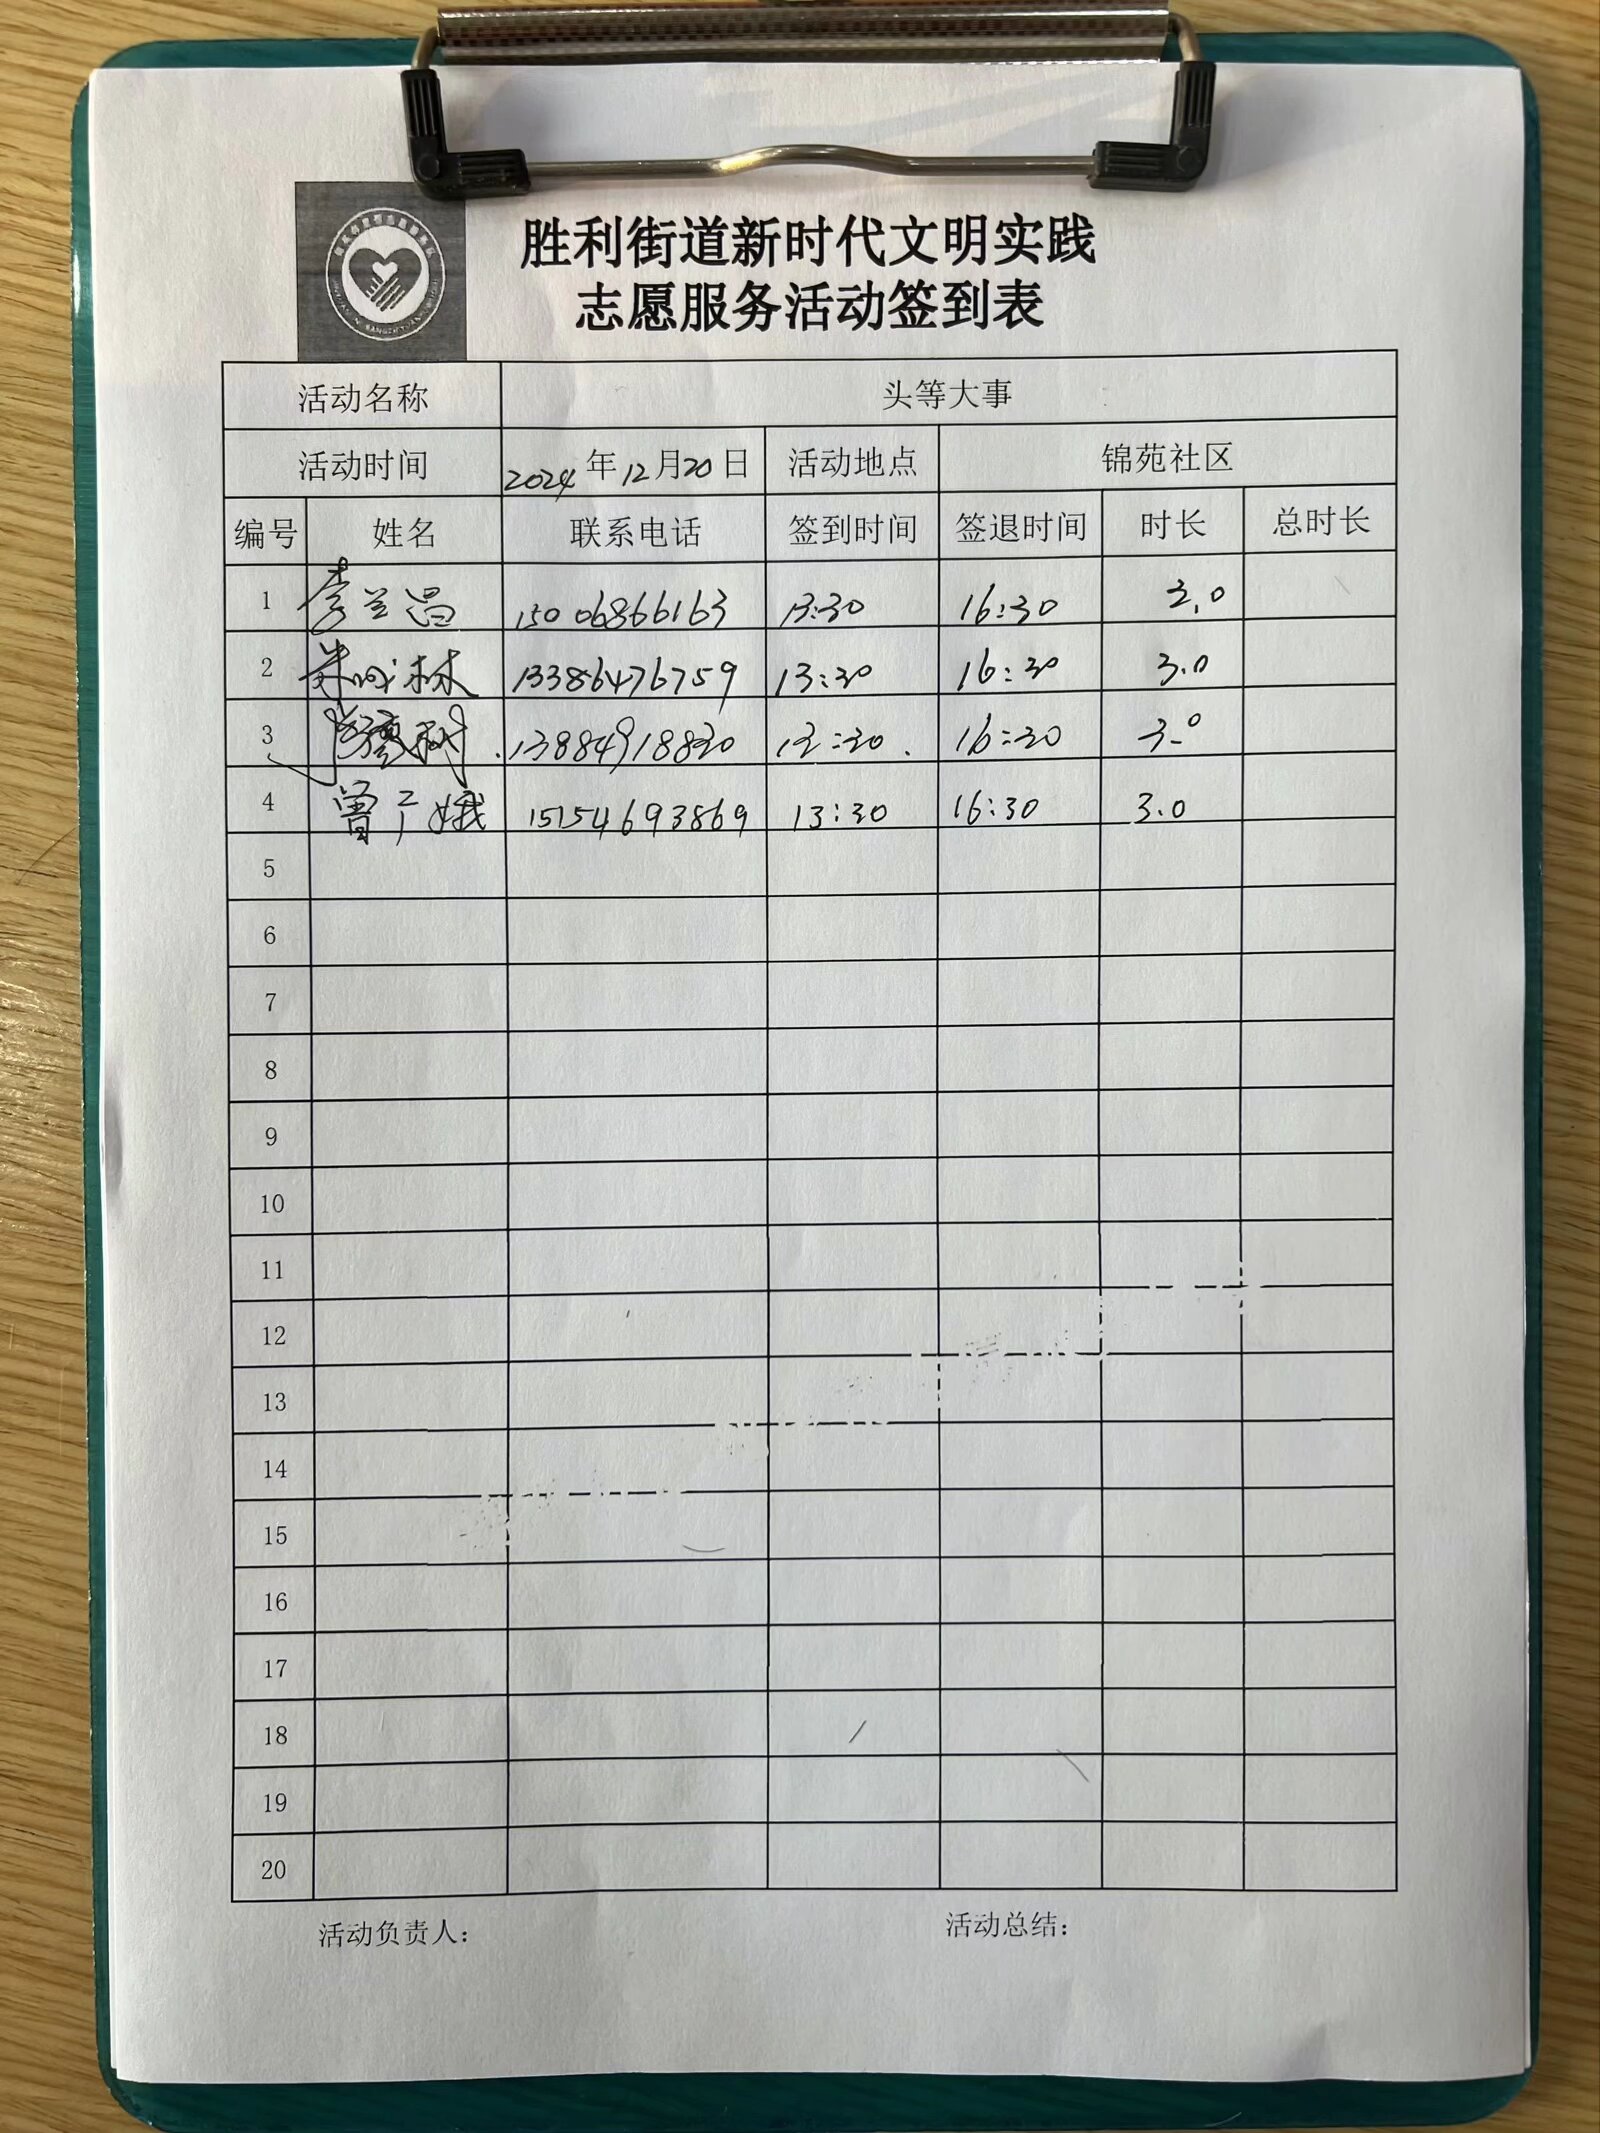 胜利街道新时代文明实践
志愿服务活动签到表
活动名称 头等大事
活动时间 2024年12月20日 活动地点 锦苑社区
编号 姓名 联系电话 签到时间 签退时间 时长 总时长
1 李兰昌 15006866163 13:30 16:30 3.0
2 朱成林 13386476759 13:30 16:30 3.0
3 13884918830 13:30 16:30 3.0
4 曾广娥 15154693869 13:30 16:30 3.0
5
6
7
8
9
10
11
12
13
14
15
16
17
18
19
20
活动负责人: 活动总结: